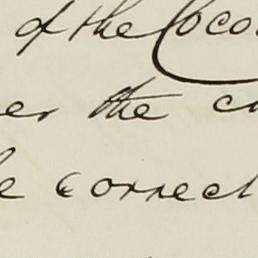 of the Coco
er the c
e correct